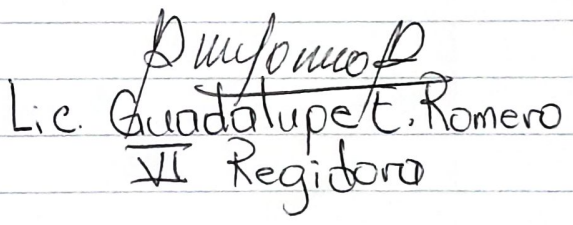 Lic. Guadalupe t. Romero
VI Regidora